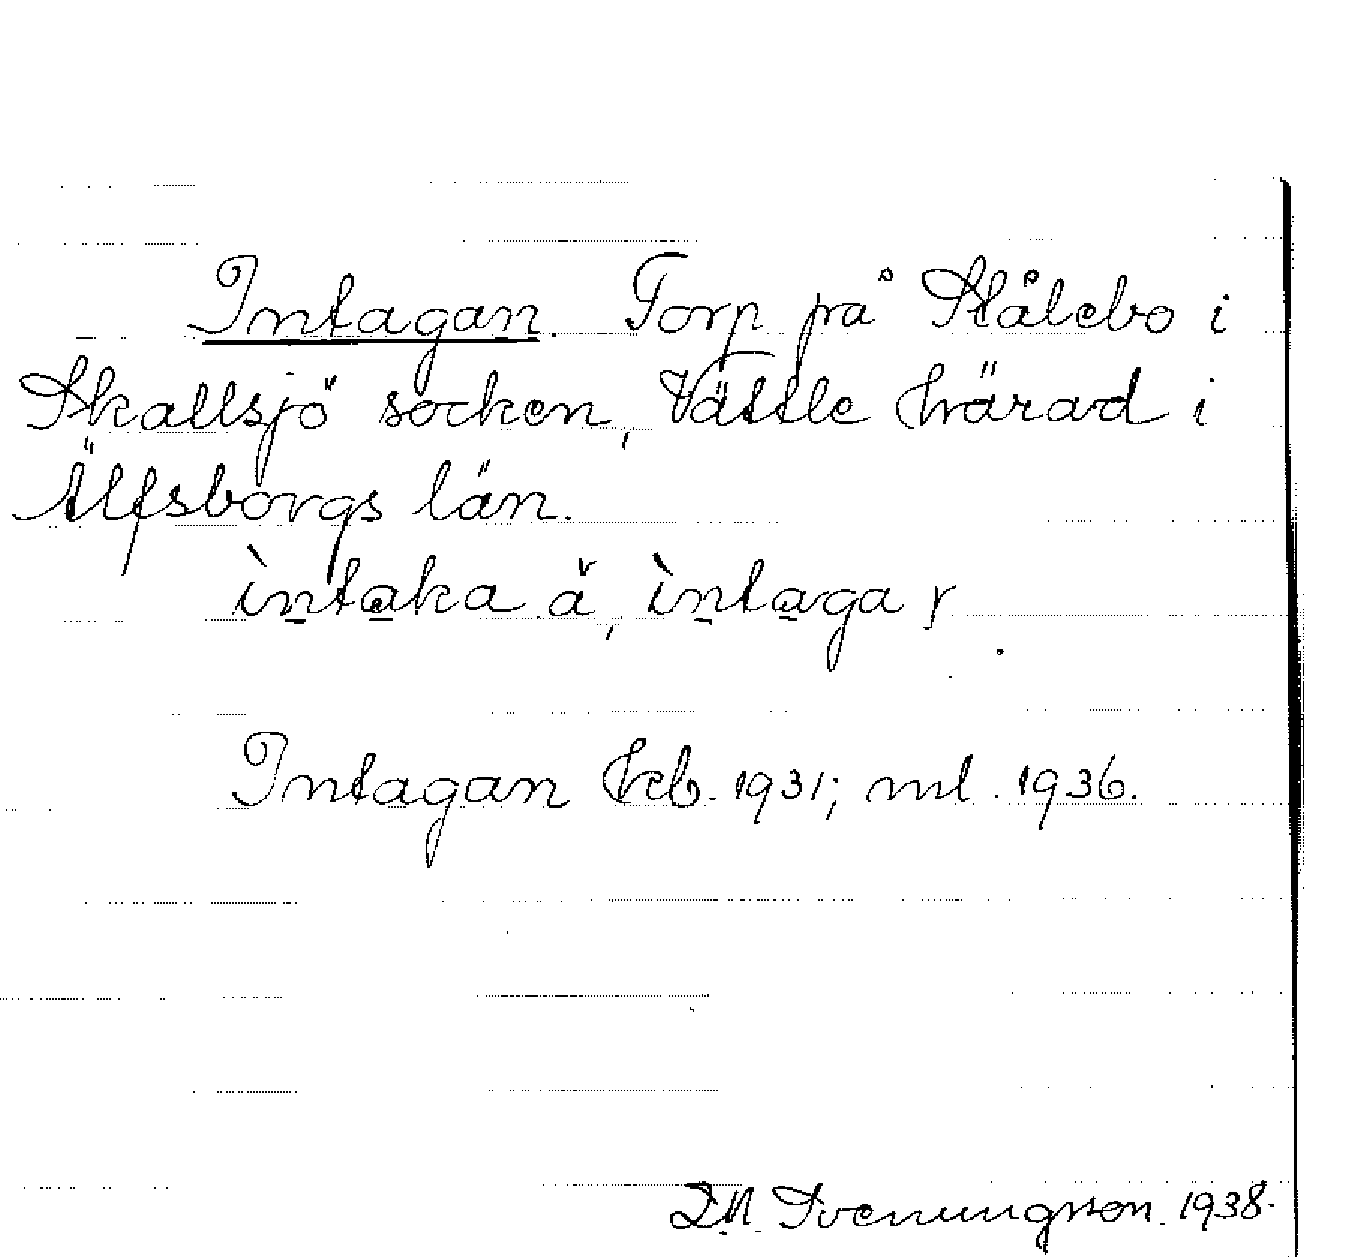 Intagan. Torp på Stålebo i
Skallsjö socken, Vättle härad i
Älfsborgs län.
ìntaka ǎ, ìntaga r
Intagan Jreb. 1931; ml. 1936.
Svenungsson. 1938.